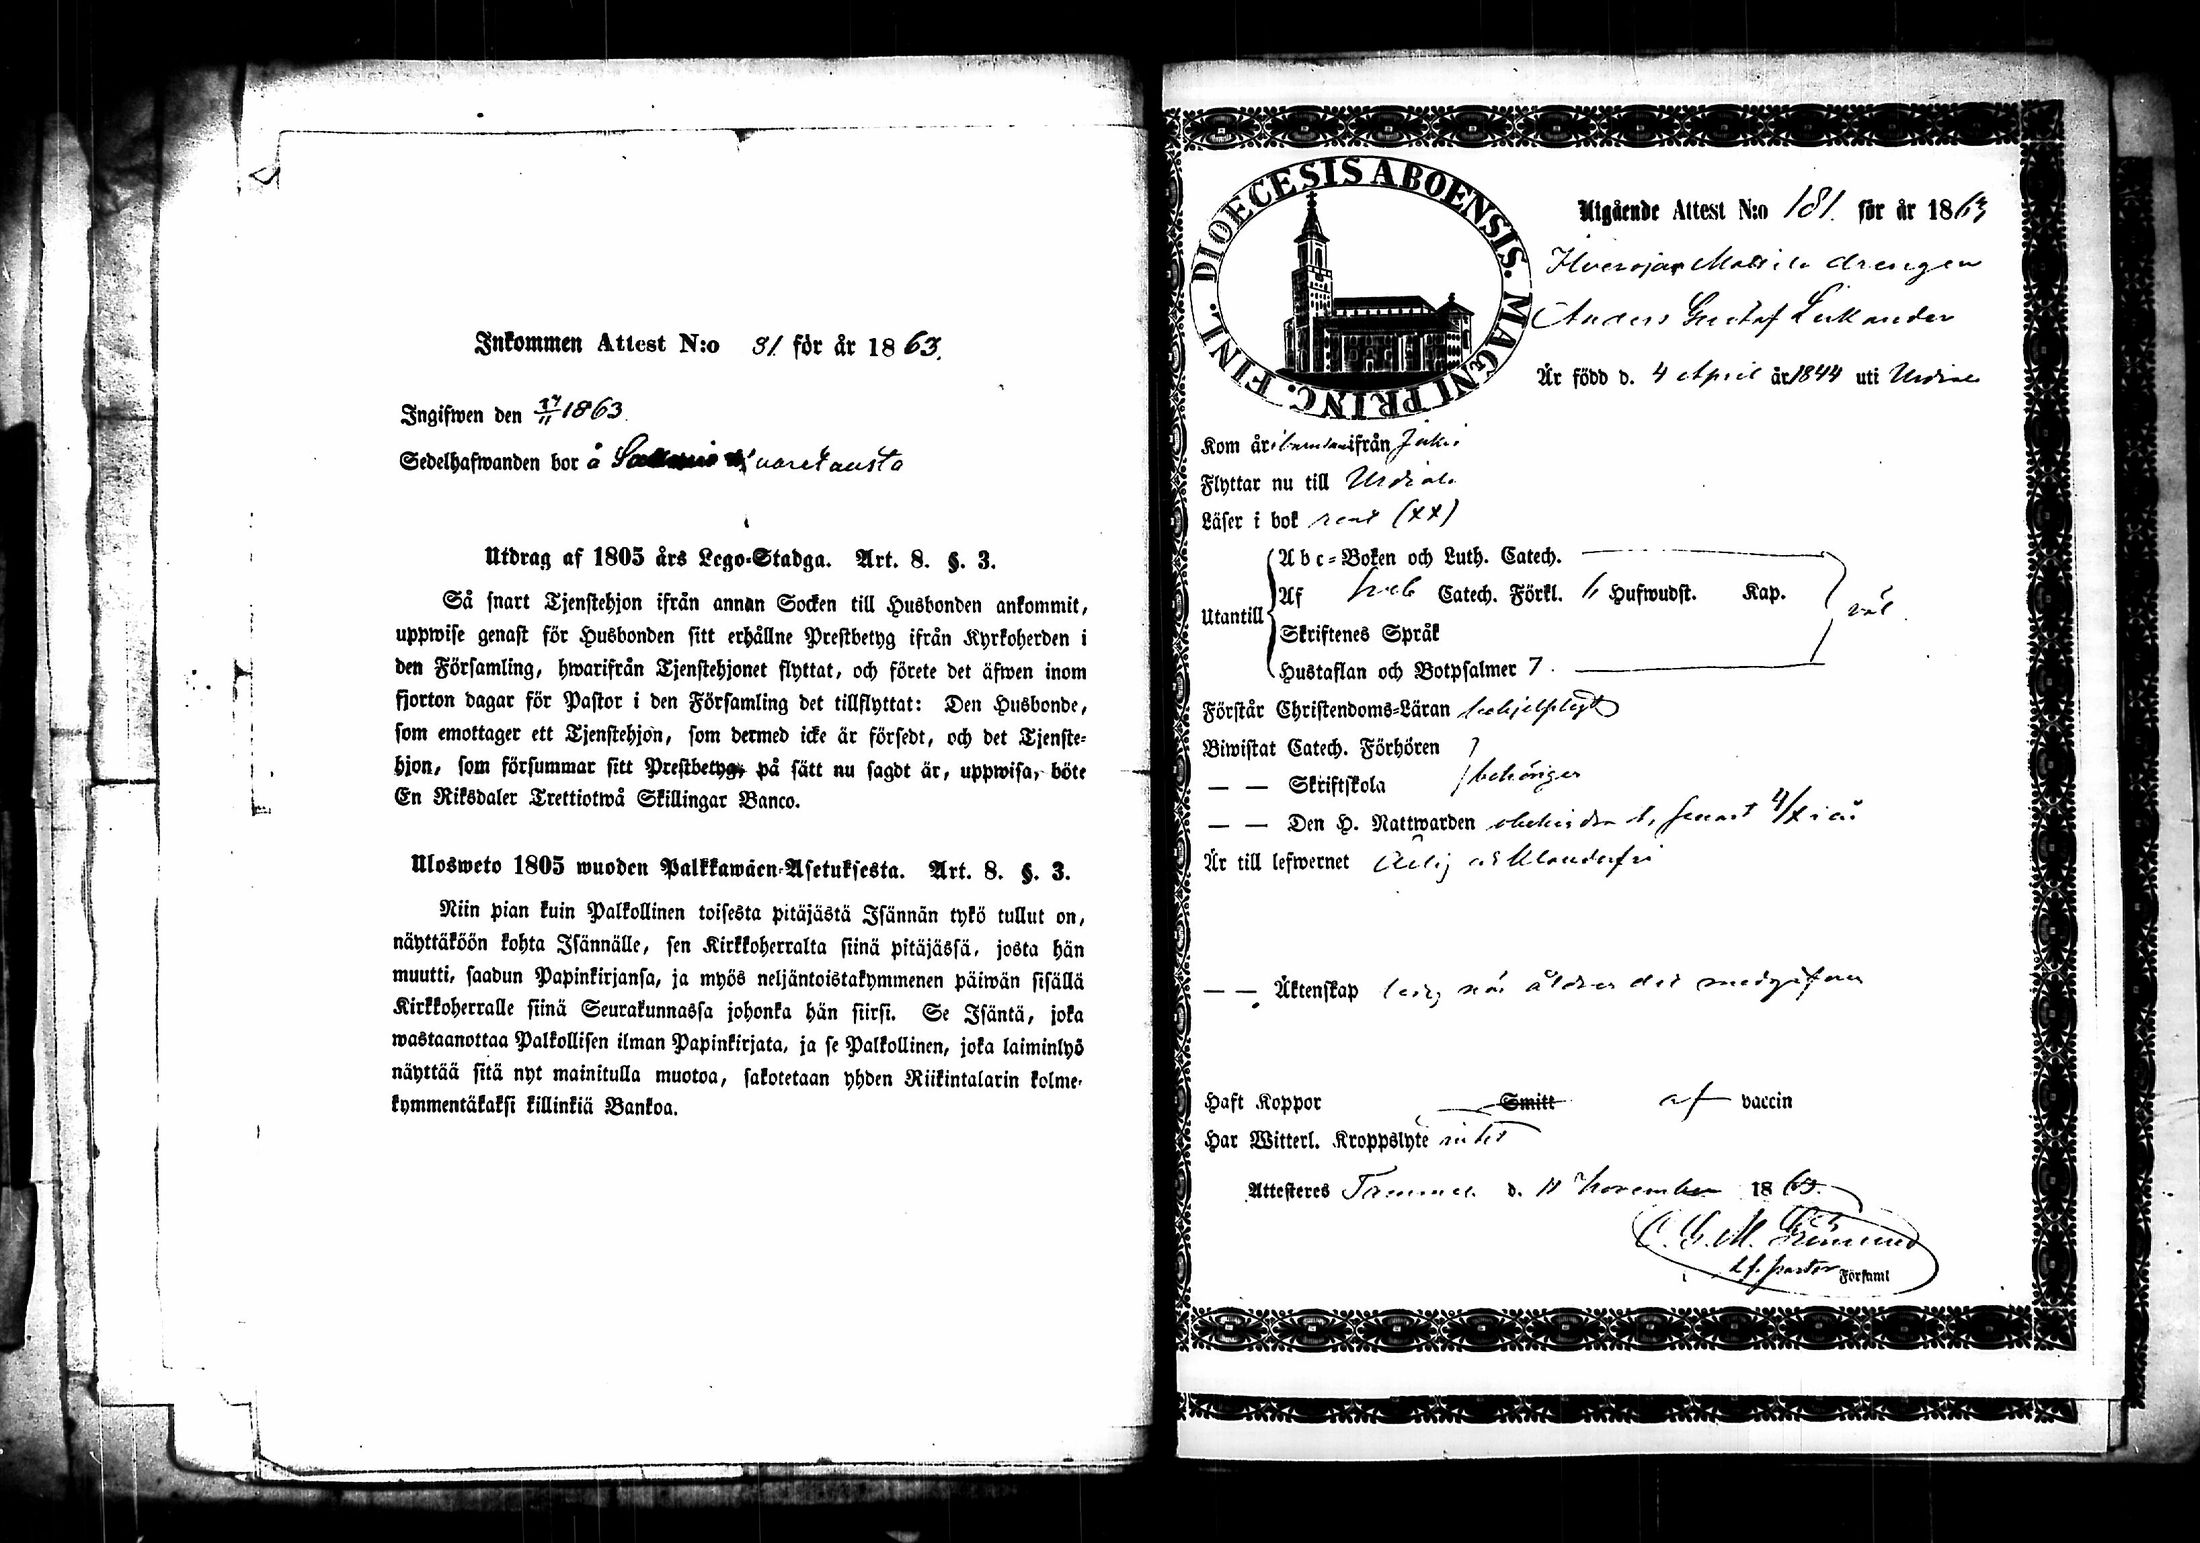 Inkommen Attest N:o 81. för år 1863.
Ingifwen den 27/11 1863.
Sedelhafwanden bor å
Utdrag af 1805 års Lego-Stadga. Art. 8. §. 3.
Så snart Tjenstehjon ifrån annan Socken till Husbonden ankommit,
uppwise genast för Husbonden sitt erhållne Prestbetyg ifrån Kyrkoherden i
den Församling, hwarifrån Tjenstehjonet flyttat, och förete det äfwen inom
fjorton dagar för Pastor i den Församling det tillflyttat: Den Husbonde,
som emottager ett Tjenstehjon, som dermed icke är försedt, och det Tjenste-
hjon, som försummar sitt Prestbetyg, på sätt nu sagdt är, uppwisa, böte
En Riksdaler Trettiotwå Skillingar Banco.
Ulosweto 1805 wuoden Palkkawäen-Asetuksesta. Art. 8. §. 3.
Niin pian kuin Palkollinen toisesta pitäjästä Isännän tykö tullut on,
näyttäköön kohta Isännälle, sen Kirkkoherralta siinä pitäjässä, josta hän
muutti, saadun Papinkirjansa, ja myös neljäntoistakymmenen päiwän sisällä
Kirkkoherralle siinä Seurakunnassa johonka hän siirsi. Se Isäntä, joka
wastaanottaa Palkollisen ilman Papinkirjata, ja se Palkollinen, joka laiminlyö
näyttää sitä nyt mainitulla muotoa, sakotetaan yhden Riikintalarin kolme-
kymmentäkaksi killinkiä Bankoa.
DIOECESIS ABOENSIS. MAGNI PRINC. FINL.
Utgående Attest N:o 181. för år 1863
drengen
Anders Gustaf
Är född d. 4 April år 1844 uti Urdiala
Kom år ifrån Jokis
Flyttar nu till Urdiala
Läser i bok rent (xx)
Abc-Boken och Luth. Catech.
Utantill Af Sveb Catech. Förkl. 6 Hufwudst. Kap. väl
Skriftenes Språk
Hustaflan och Botpsalmer 7.
Förstår Christendoms-Läran behjelpligt
Biwistat Catech. Förhören
— — Skriftskola behörigen
— — Den H. Nattwarden senast 4/X i år
Är till lefwernet ärlig och klanderfri
— — Äktenskap ledig när ålder det medgifver
Haft Koppor Smitt af vaccin
Har Witterl. Kroppslyte intet
Attesteres Tammela d. 11 November 1863.
Förkaml